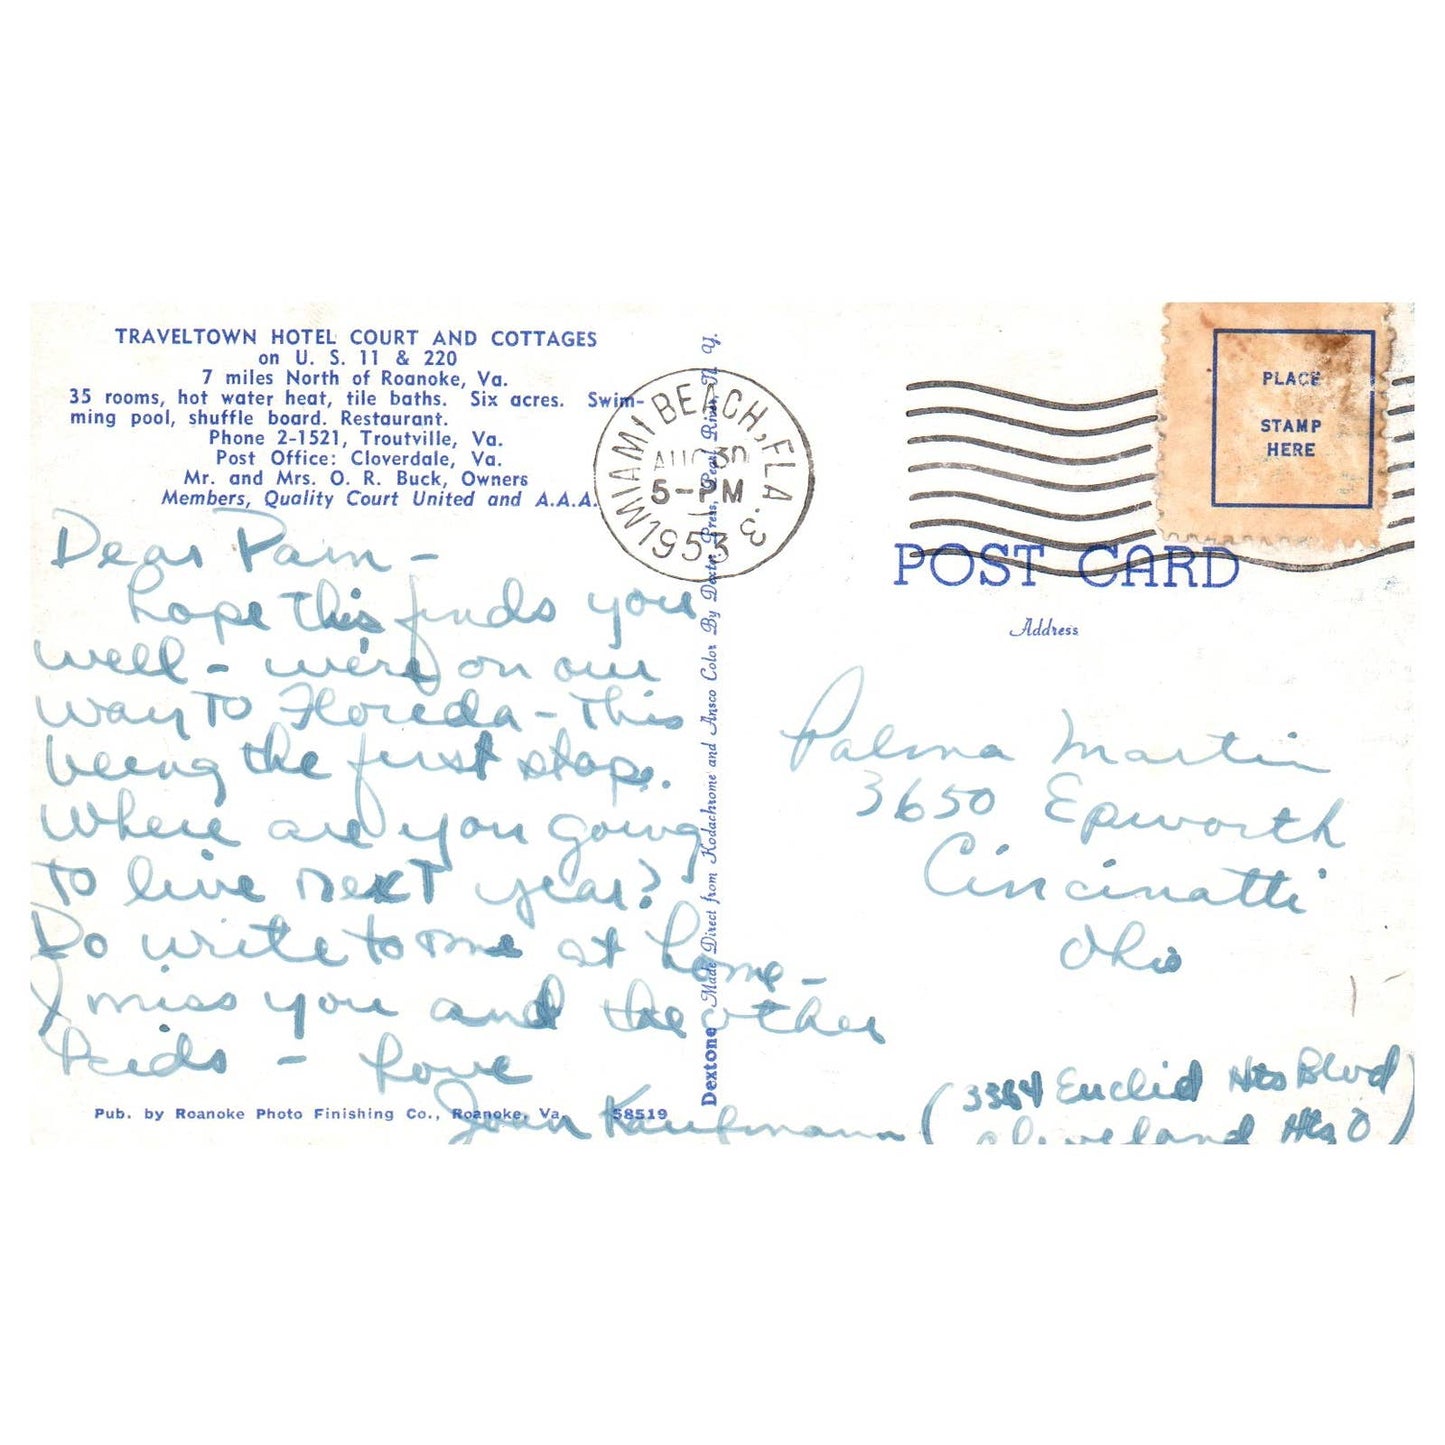 TRAVELTOWN HOTEL COURT AND COTTAGES
on U. S. 11 & 220
7 miles North of Roanoke, Va.
35 rooms, hot water heat, tile baths. Six acres. Swim-
ming pool, shuffle board. Restaurant.
Phone 2-1521, Troutville, Va.
Post Office: Cloverdale, Va.
Mr. and Mrs. O. R. Buck, Owners
Members, Quality Court United and A.A.A.
Dear Pam -
hope this finds you
well - we're on our
way to Floreda - This
being the first stop.
Where are you going
to live next year?
Do write to me at home -
I miss you and the other
kids - Love
Joan Kaufmann
Pub. by Roanoke Photo Finishing Co., Roanoke, Va. 58519
Dextone Made Direct from Kodachrome and Ansco Color By Dexter Press, Pearl River, N. Y.
MIAMI BEACH, FLA. 3
AUG 30
5-PM
1953
PLACE
STAMP
HERE
POST CARD
Address
Palma Martin
3650 Epworth
Cincinatti
Ohio
(3384 Euclid Hts Blvd
Cleveland Hts O)